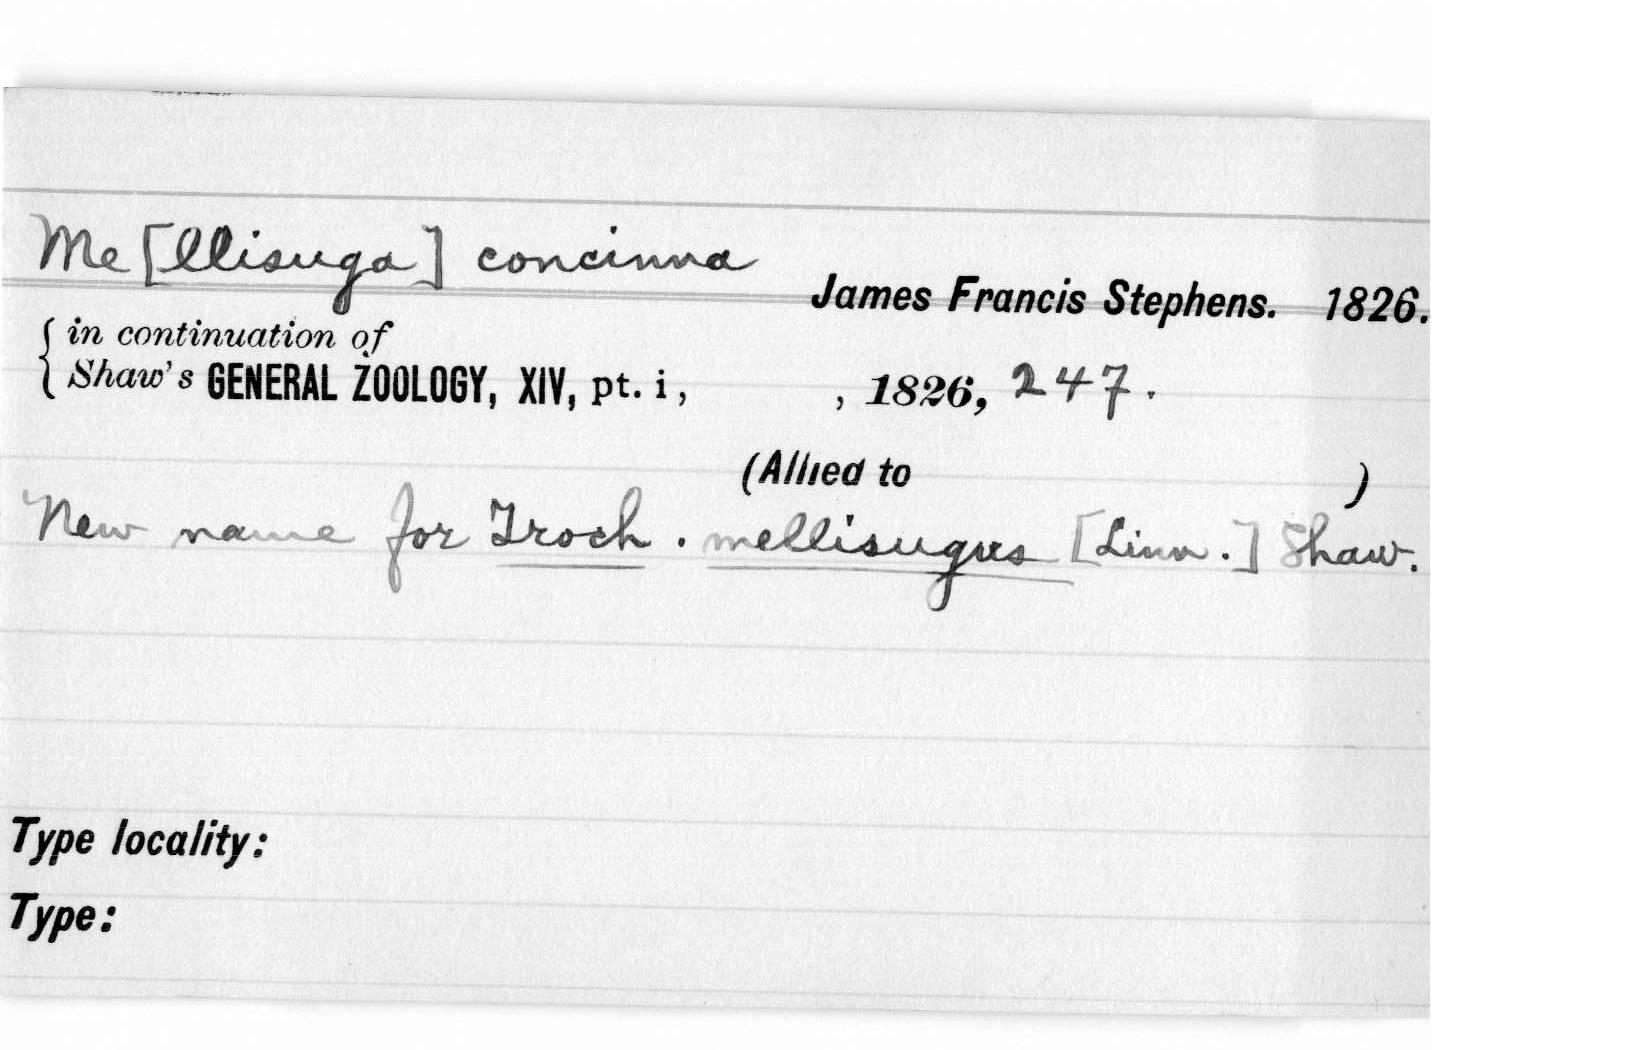 Me [llisuga] concinna
James Francis Stephens. 1826.
{ in continuation of
Shaw's GENERAL ZOOLOGY, XIV, pt. i, , 1826, 247.
(Allied to )
New name for Troch. mellisugus [Linn.] Shaw.
Type locality:
Type: